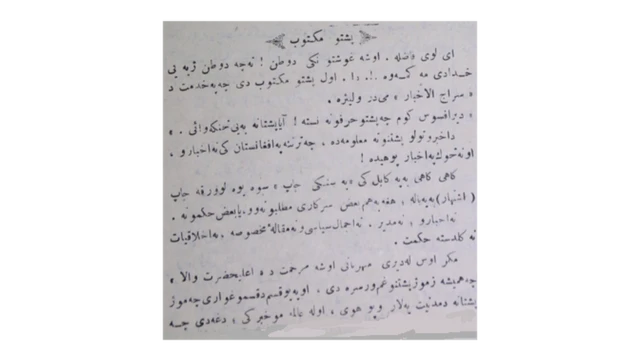 پشتو مکتوب
ای لوی فاضله . اوشه غوښتونکی دوطن ! نه‌چه دوطن ژبه یی
خدادی مه کمه‌وه . !. ۱۰. اول پشتو مکتوب دی چه‌په‌خدمت د
« سراج الاخبار » می‌در ولیژه .
« دیرافسوس کوم چه‌پشتوحرفونه نسته ! آیاپشتانه به‌یی‌څنکه‌وائی . »
داخبروتولو پشتنونه معلومه‌ده ، چه‌ترسنه‌په‌افغانستان کی‌نه‌اخبارو .
اونه‌څوك‌په‌اخبار پوهیده !
کاهی کاهی به‌په کابل کی « په سنکی چاپ » سوه یوه لوورقه چاپ
( اشتهار ) به‌په‌باله ، هغه‌به‌هم بعض سرکاری مطلبونه‌وو ، یابعض حکمونه .
نه‌اخبارو ، نه‌مدیر . نه‌اجمال‌سیاسی‌ونه‌مقالهٔ مخصوصه ، نه‌اخلاقیات
نه کلدسته حکمت .
مکر اوس له‌دیری مهربانی اوشه مرحمت ده اعلیحضرت والا »
چه‌همیشه زموږپشتنوغم‌ورسره دی ، اوپه‌یوقسم‌دقسموغواری‌چه‌موږ
پشتانه دمدنیت په‌لار ویوهوی ، اوله عالمه موخبرکی ، دغه‌دی چه